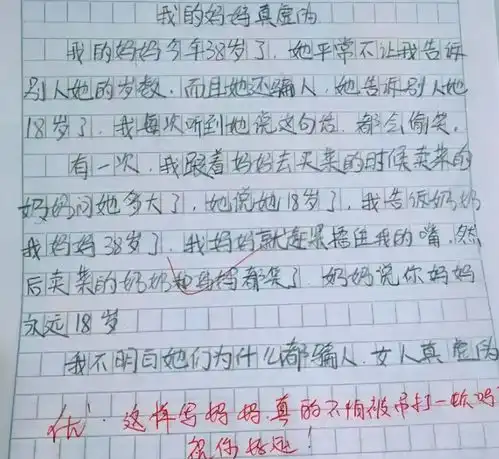 我的妈妈真虚伪
我的妈妈今年38岁了，她平常不让我告诉
别人她的岁数，而且她还骗人，她告诉别人她
18岁了，我每次听到她说这句话，都会偷笑。
有一次，我跟着妈妈去买菜的时候卖菜的
奶奶问她多大了，她说她18岁了，我告诉奶奶
我妈妈38岁了，我妈妈就赶紧捂住我的嘴，然
后卖菜的奶奶和妈妈都笑了，奶奶说你妈妈
永远18岁
我不明白她们为什么都骗人，女人真虚伪
优：这样写妈妈，真的不怕被吊打一顿吗
祝你好运！